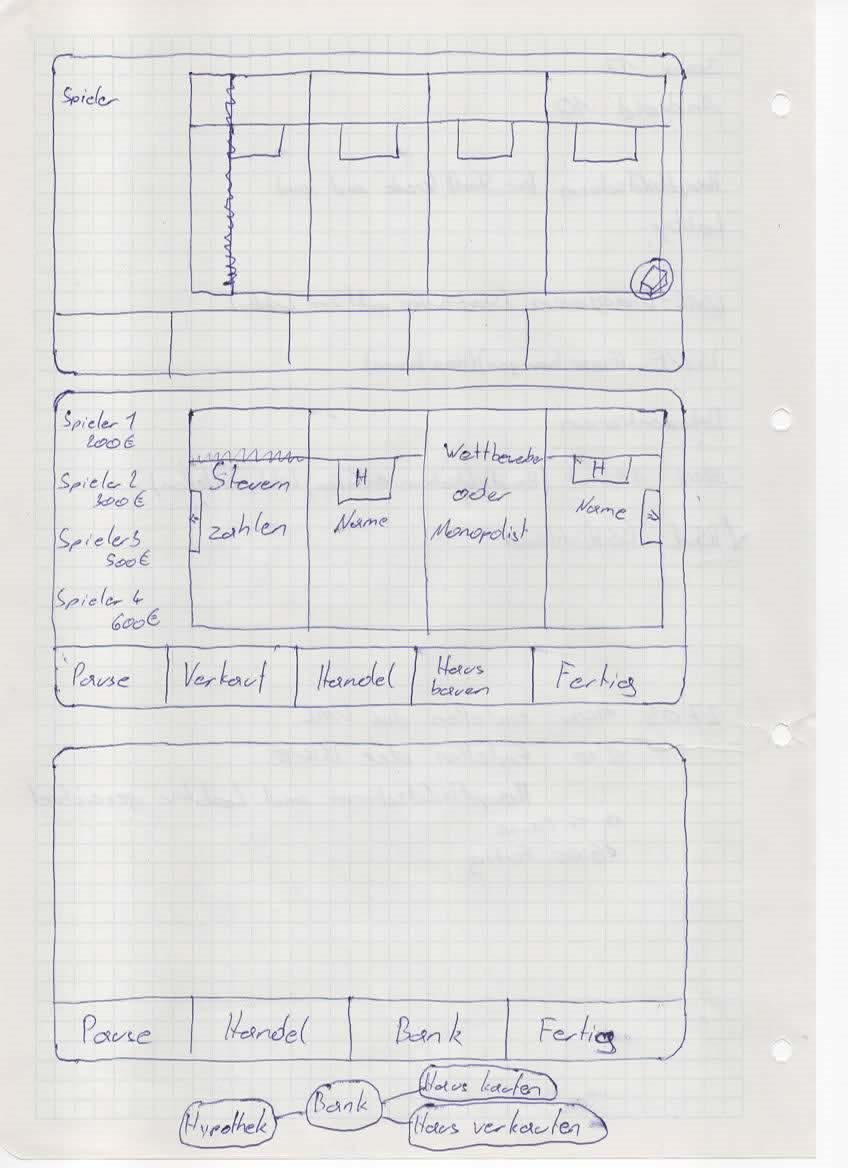 Spieler
Spieler 1
200€
Spieler 2
300€
Spieler 3
500€
Spieler 4
600€
Steuern
zahlen
H
Name
Wettbewerber
oder
Monopolist
H
Name
Pause
Verkauf
Handel
Haus
bauen
Fertig
Pause
Handel
Bank
Fertig
Haus kaufen
Bank
Hypothek
Haus verkaufen